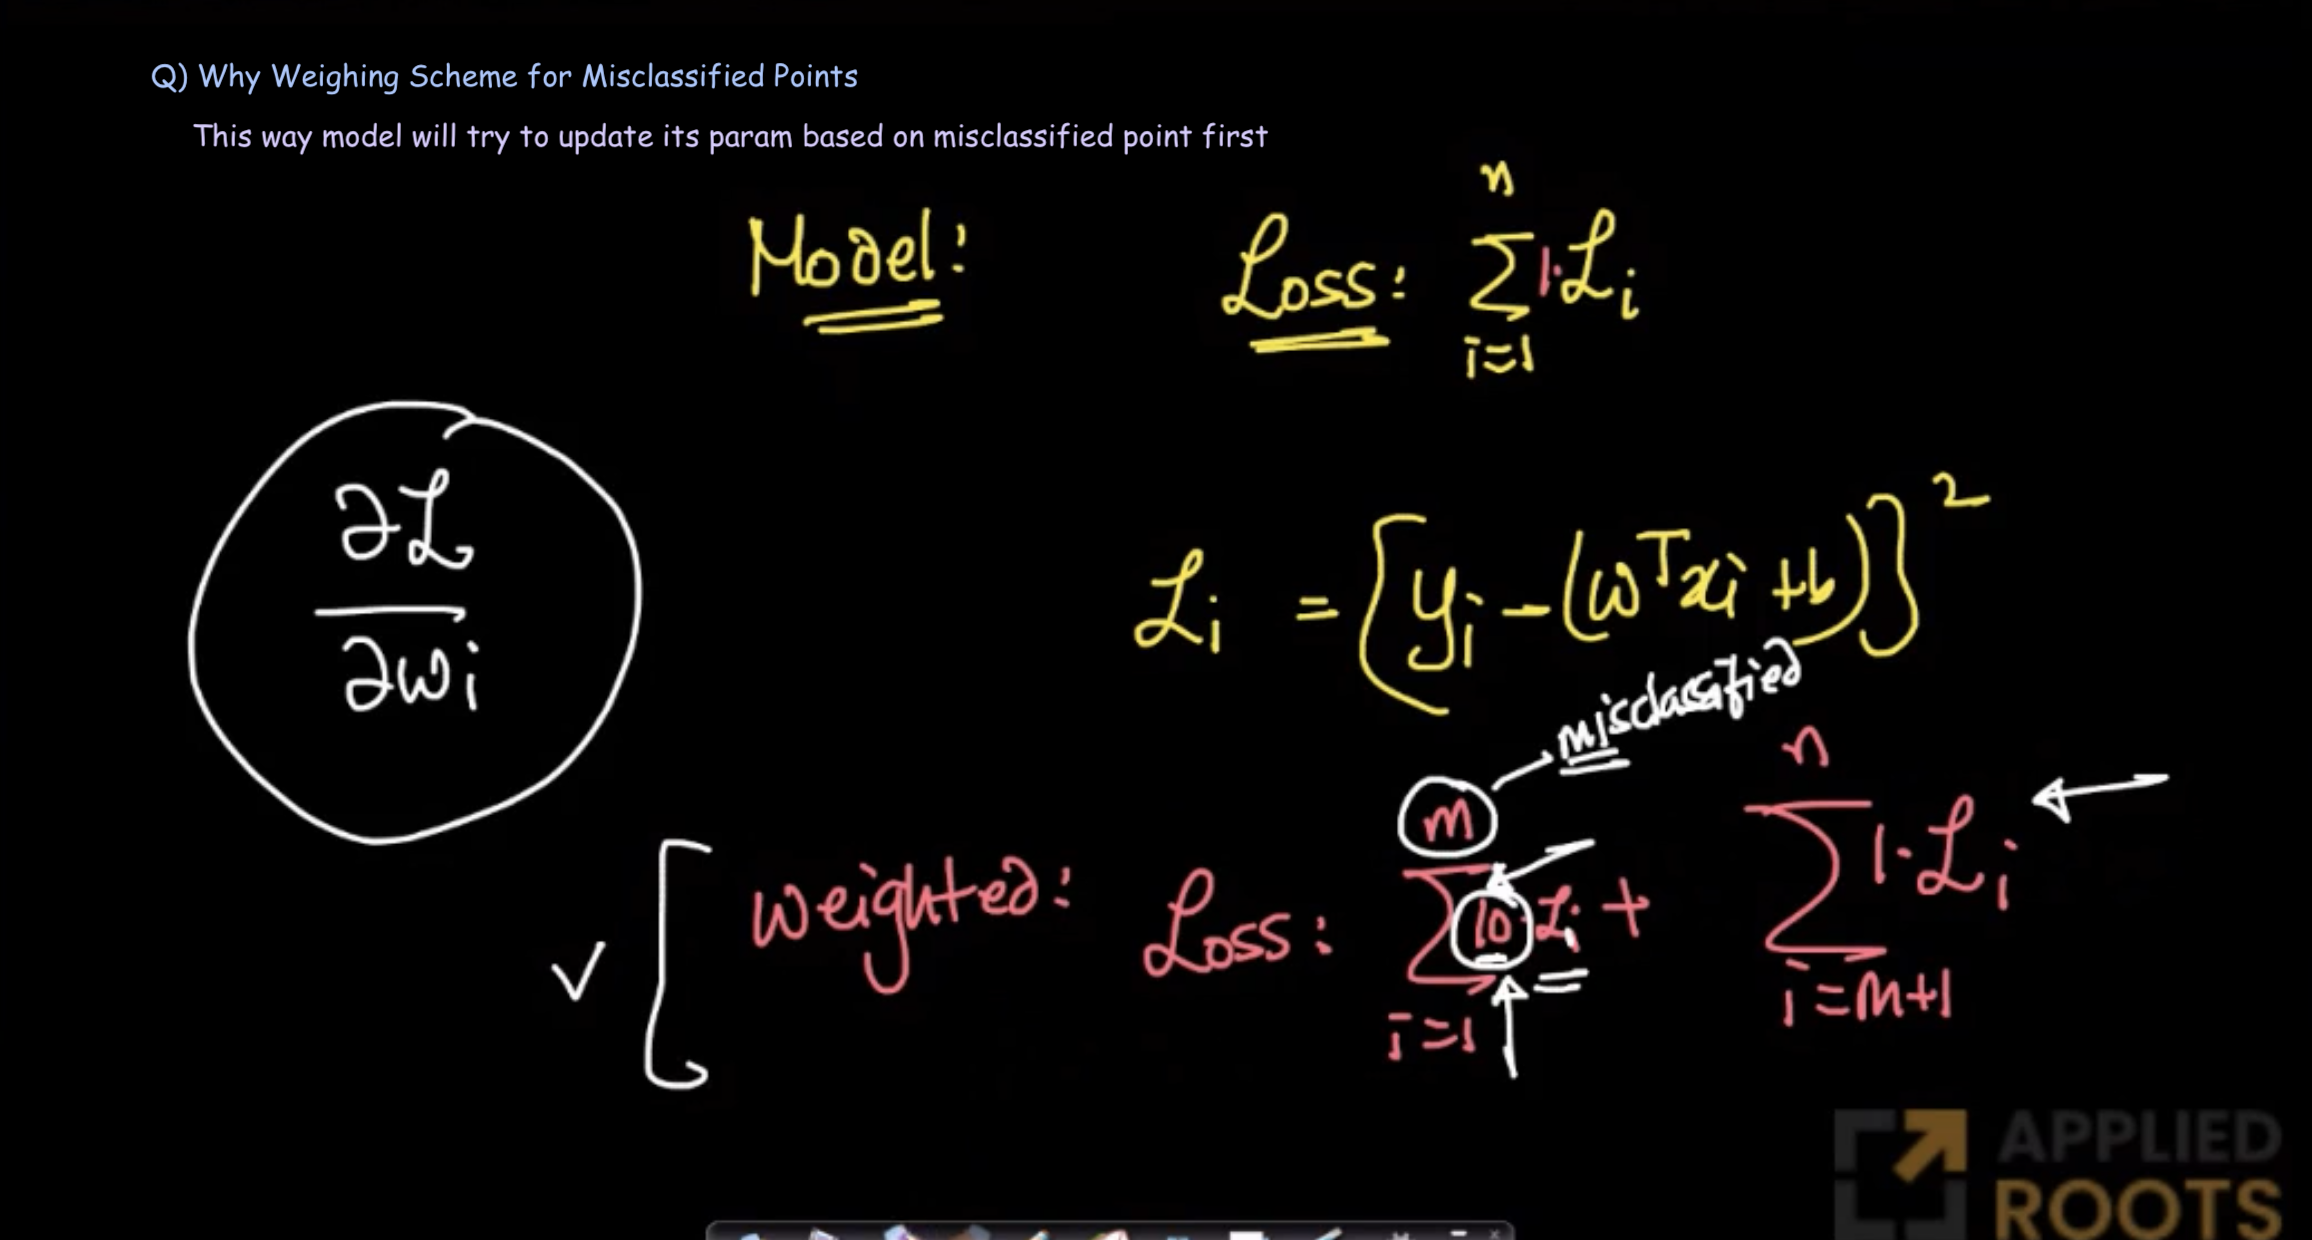 Q) Why Weighing Scheme for Misclassified Points
This way model will try to update its param based on misclassified point first
Model: Loss: n Σ i=1 1·ℒi
∂ℒ / ∂wi
ℒi = [yi - (wᵀxi + b)]²
misclassified
✓ [ Weighted: Loss: m Σ i=1 10·ℒi + n Σ i=m+1 1·ℒi
APPLIED
ROOTS